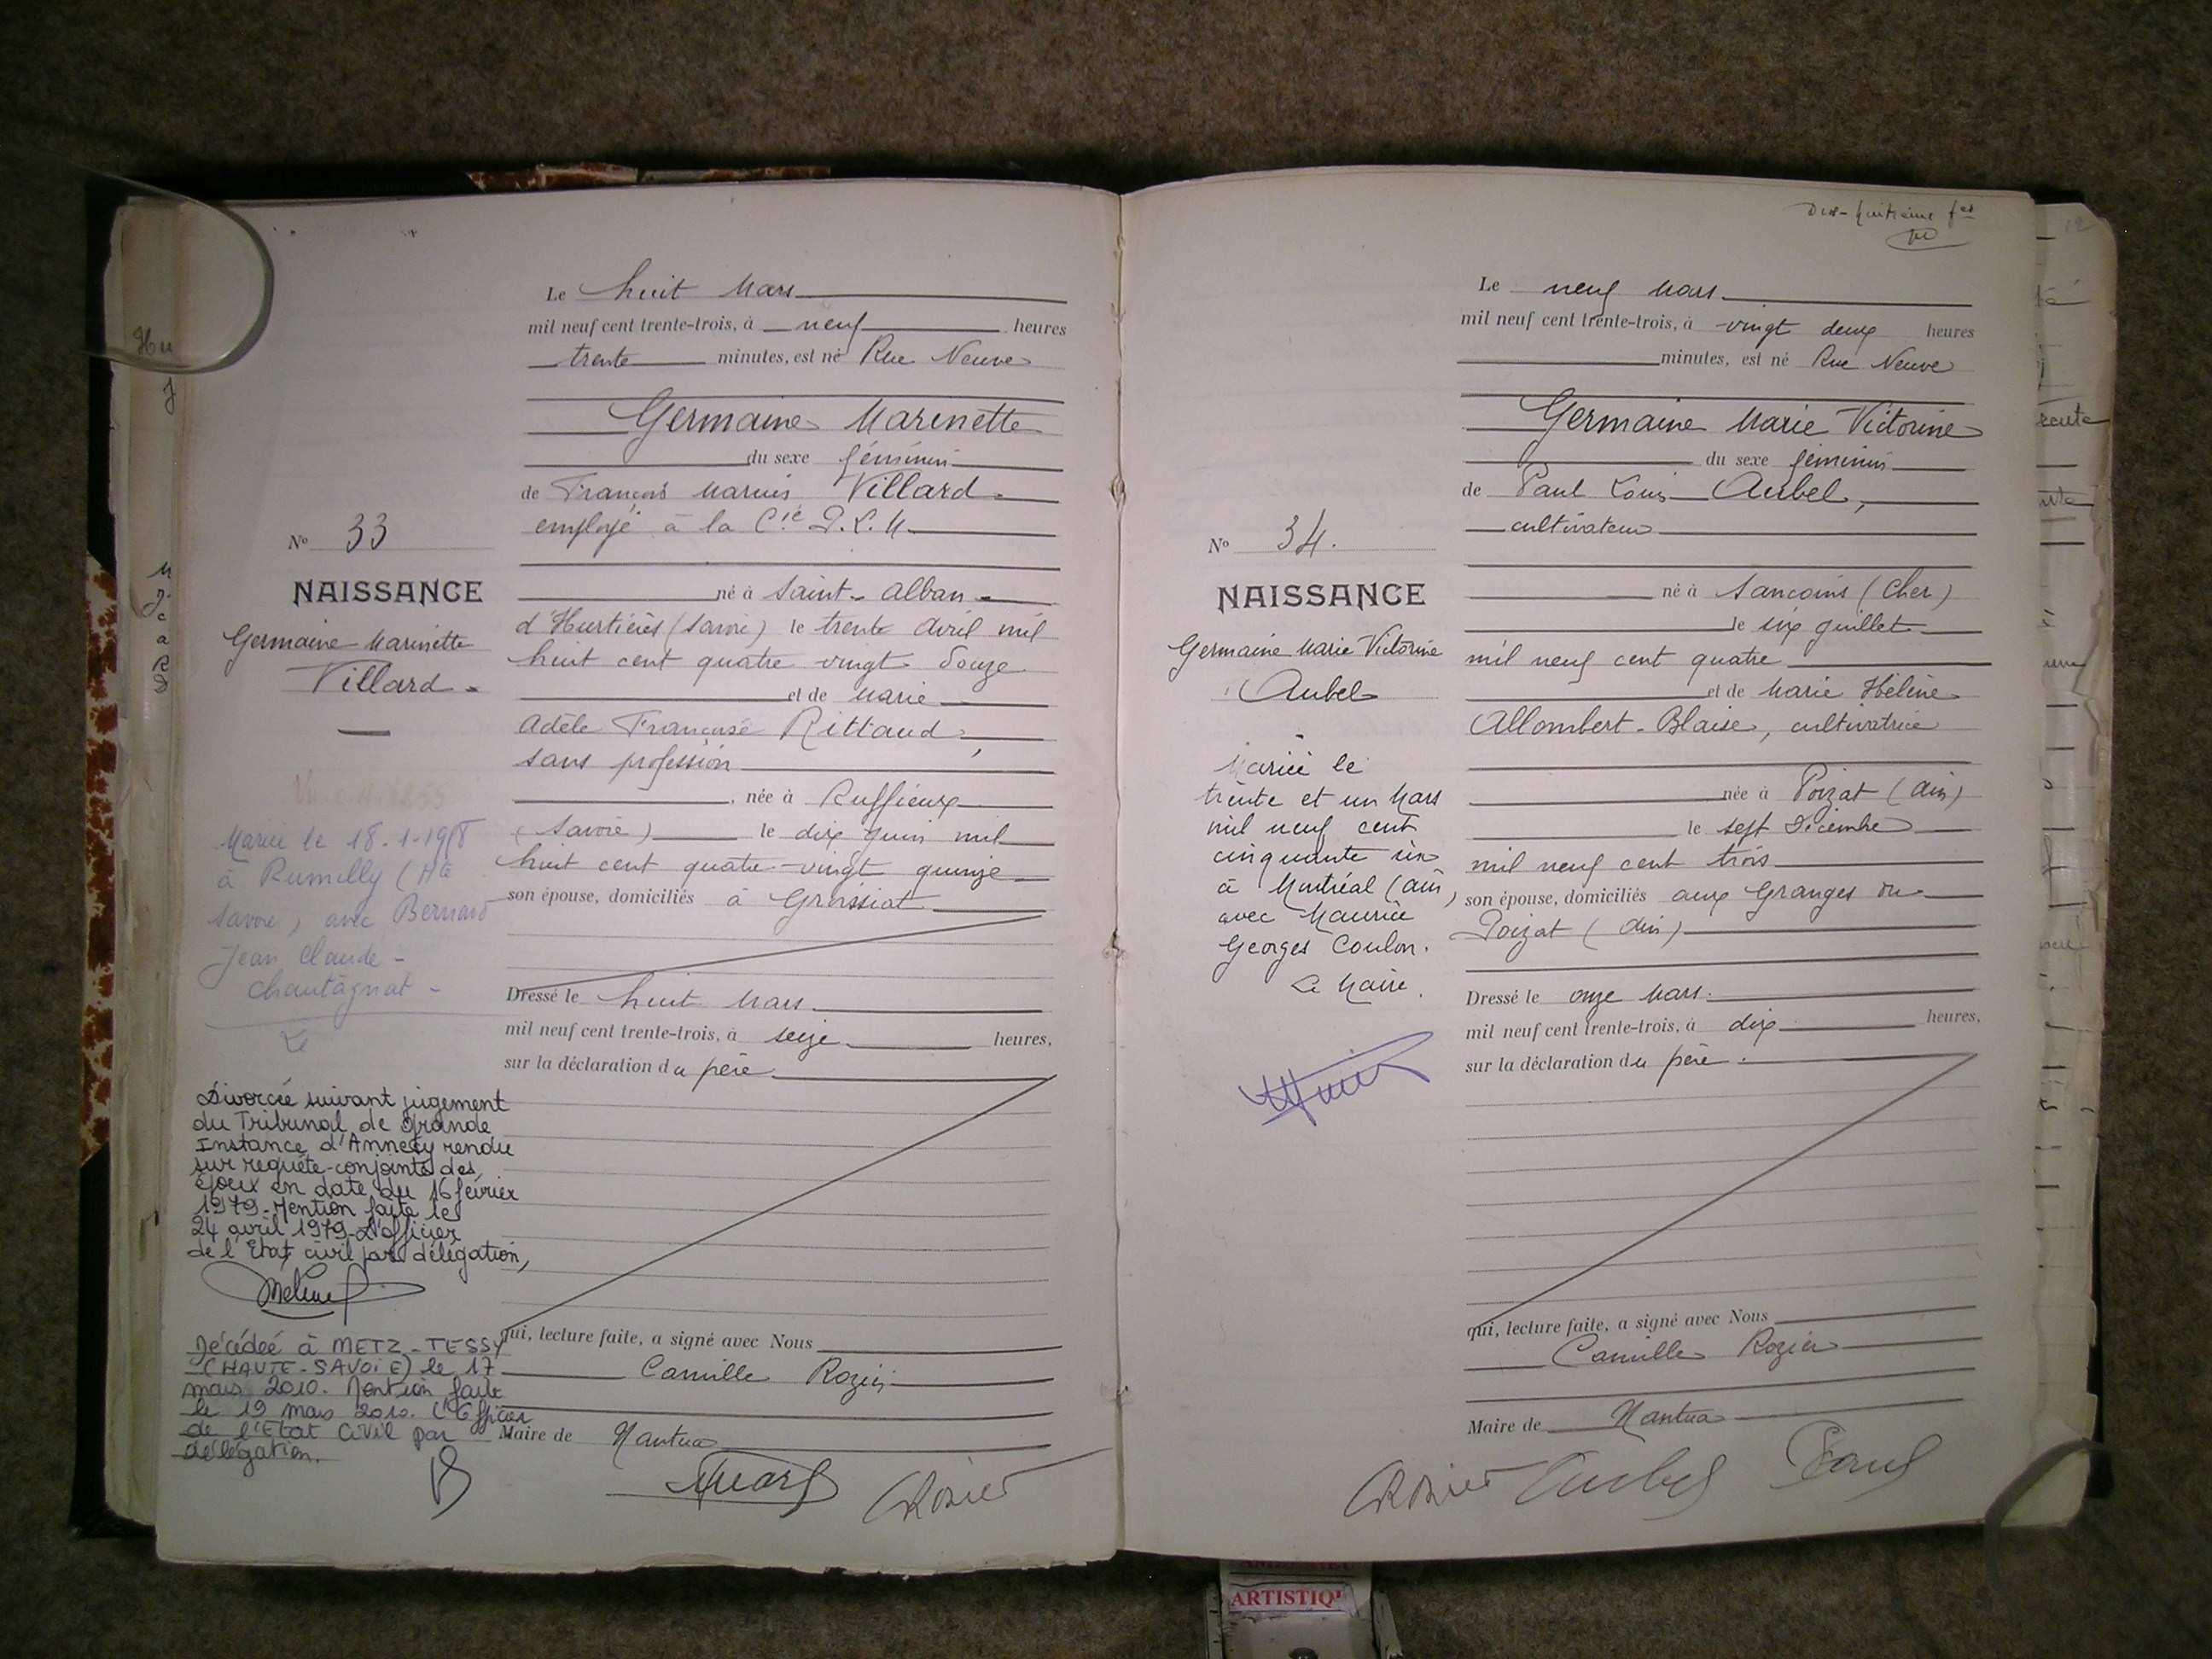 Le huit Mars
mil neuf cent trente-trois, à neuf heures
trente minutes, est né Rue Neuve
Germaine Marinette
du sexe féminin
de François Marius Villard
employé à la Cie P.L.M.
né à Saint-Alban
d'Hurtières (Savoie) le trente Avril mil
huit cent quatre vingt douze
et de Marie
Adèle Françoise Rittaud,
sans profession
, née à Ruffieux
(Savoie) le dix Juin mil
huit cent quatre-vingt quinze
son épouse, domiciliés à Groissiat
Dressé le huit Mars
mil neuf cent trente-trois, à seize heures,
sur la déclaration du père
qui, lecture faite, a signé avec Nous
Camille Rozier
Maire de Nantua
Rosier
No 33
NAISSANCE
Germaine Marinette
Villard
Mariée le 18.1.19
à Rumilly (Hte
Savoie), avec Bernard
Jean Claude
Chautagnat
Le
Divorcée suivant jugement
du Tribunal de Grande
Instance d'Annecy rendu
sur requête conjointe des
époux en date du 16 février
1979. Mention faite le
24 avril 1979. L'officier
de l'Etat civil par délégation,
Décédée à METZ-TESSY
(HAUTE-SAVOIE) le 17
mars 2010. Mention faite
le 19 mars 2010. L'Officier
de l'Etat Civil par
délégation.
Dix-huitième
Le neuf Mars
mil neuf cent trente-trois, à vingt deux heures
minutes, est né Rue Neuve
Germaine Marie Victorine
du sexe féminin
de Paul Louis Aubel,
cultivateur
né à Sancoins (Cher)
le six Juillet
mil neuf cent quatre
et de Marie Hélène
Allombert-Blaise, cultivatrice
née à Poizat (Ain)
le sept Décembre
mil neuf cent trois
son épouse, domiciliés aux Granges du
Poizat (Ain)
Dressé le onze Mars
mil neuf cent trente-trois, à dix heures,
sur la déclaration du père
qui, lecture faite, a signé avec Nous
Camille Rozier
Maire de Nantua
Rosier Aubel Paul
No 34.
NAISSANCE
Germaine Marie Victorine
Aubel
Mariée le
trente et un Mars
mil neuf cent
cinquante six
à Montréal (Ain)
avec Maurice
Georges Coulon.
Le Maire.
ARTISTIQ